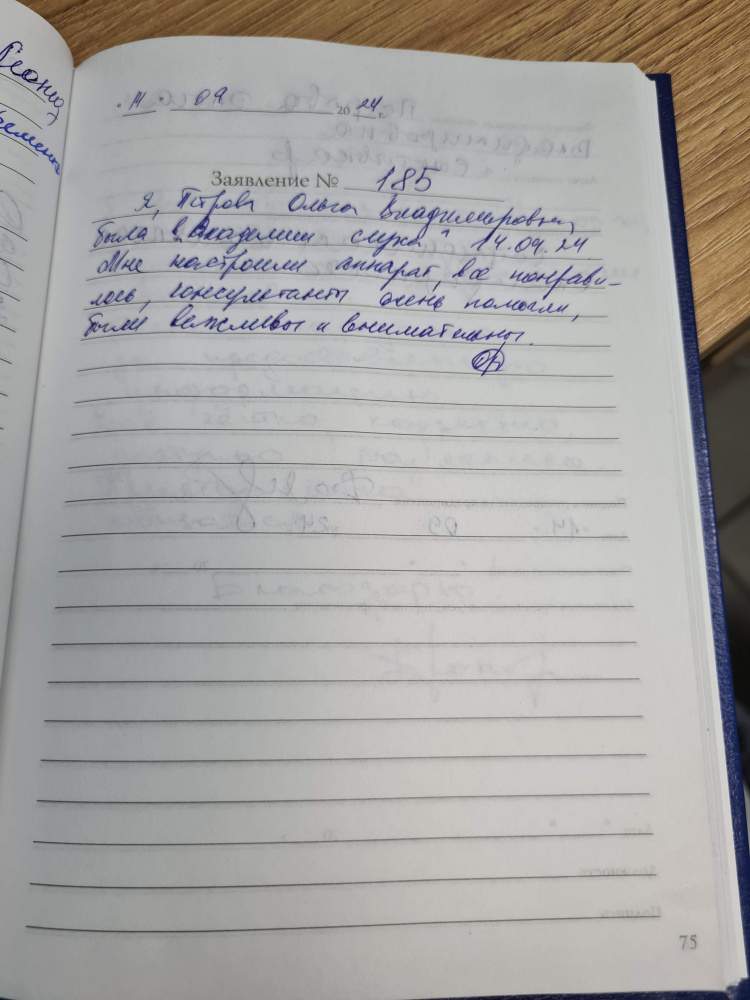 "14" 09 2024 г.
Заявление № 185
Я, Петрова Ольга Владимировна,
была в „Академии слуха" 14.09.24
Мне настроили аппарат, всё понрави-
лось, консультанты очень помогли,
были вежливы и внимательны.
75